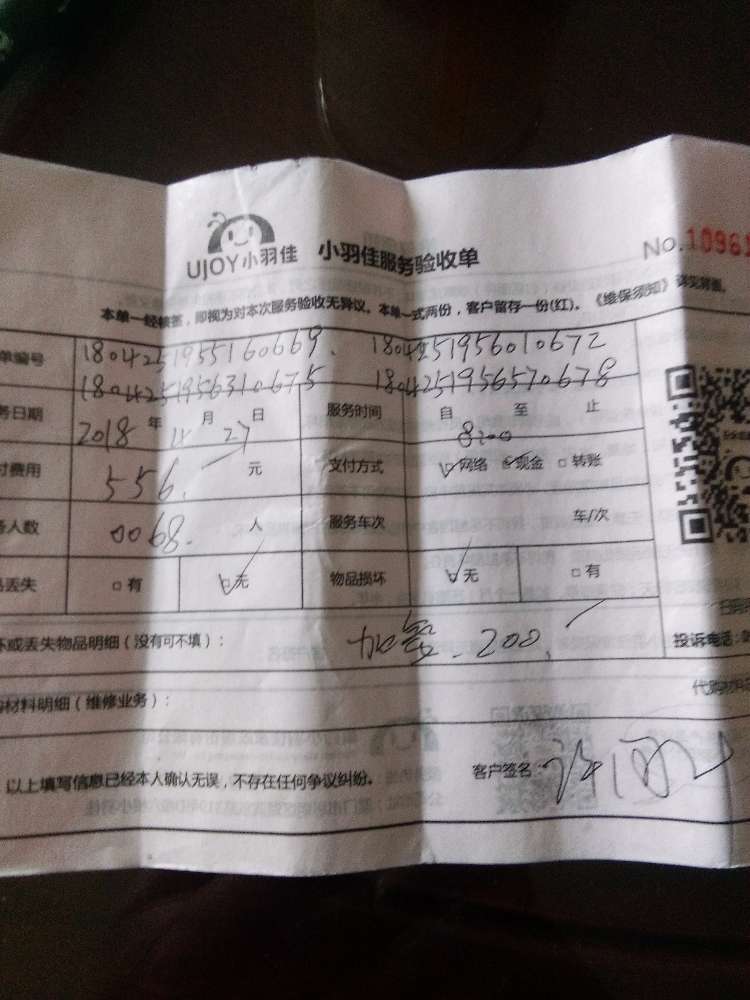 UJOY小羽佳 小羽佳服务验收单 No.10961
本单一经核签，即视为对本次服务验收无异议。本单一式两份，客户留存一份(红)。《维保须知》详见背面。
单编号 1804251955160669. 1804251956010672
1804251956310675 1804251956570678
务日期 2018年 月27日 服务时间 自 8:00 至 止
付费用 556. 元 支付方式 网络 现金 转账
务人数 0068. 人 服务车次 车/次
品丢失 有 无 物品损坏 无 有
坏或丢失物品明细（没有可不填）： 200. 投诉电话：
材料明细（维修业务）： 代购物
以上填写信息已经本人确认无误，不存在任何争议纠纷。 客户签名：